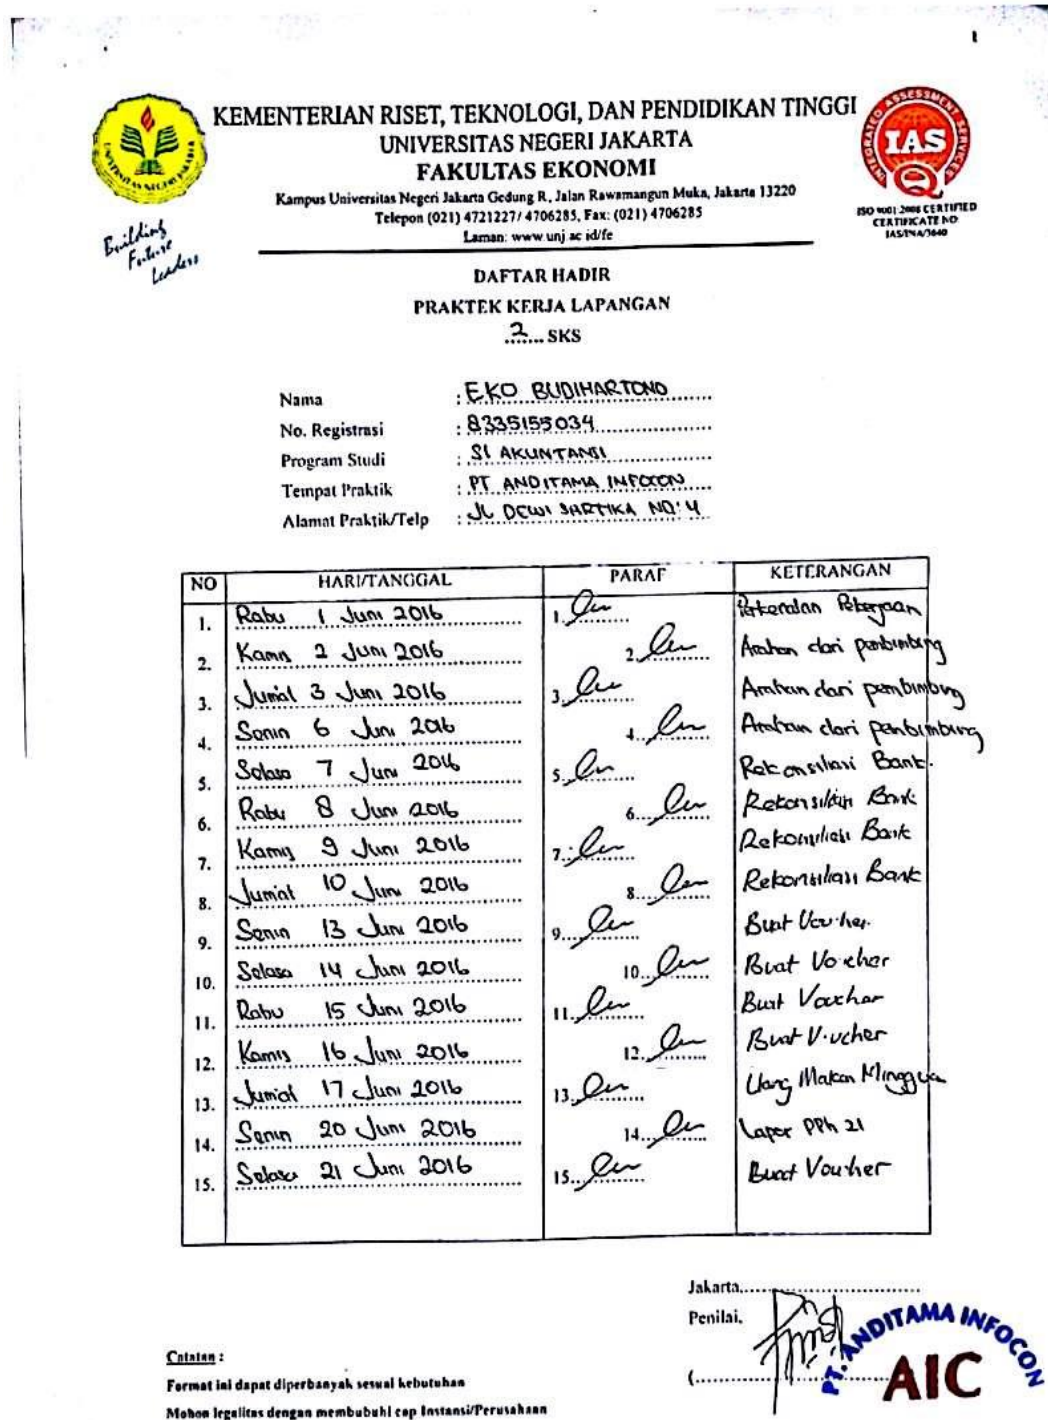 1
KEMENTERIAN RISET, TEKNOLOGI, DAN PENDIDIKAN TINGGI
UNIVERSITAS NEGERI JAKARTA
FAKULTAS EKONOMI
Kampus Universitas Negeri Jakarta Gedung R, Jalan Rawamangun Muka, Jakarta 13220
Telepon (021) 4721227/ 4706285, Fax: (021) 4706285
Laman: www.unj.ac.id/fe
UNIVERSITAS NEGERI JAKARTA
Building
Future
Leaders
INTEGRATED ASSESSMENT SERVICES
IAS
ISO 9001:2008 CERTIFIED
CERTIFICATE NO
IAS/INA/3640
DAFTAR HADIR
PRAKTEK KERJA LAPANGAN
2 SKS
Nama : EKO BUDIHARTONO
No. Registrasi : 8335155034
Program Studi : S1 AKUNTANSI
Tempat Praktik : PT ANDITAMA INFOCON
Alamat Praktik/Telp : JL DEWI SARTIKA NO: 4
NO HARI/TANGGAL PARAF KETERANGAN
1. Rabu 1 Juni 2016 1. Perkenalan Pekerjaan
2. Kamis 2 Juni 2016 2. Arahan dari pembimbing
3. Jumat 3 Juni 2016 3. Arahan dari pembimbing
4. Senin 6 Juni 2016 4. Arahan dari pembimbing
5. Selasa 7 Juni 2016 5. Rekonsiliasi Bank.
6. Rabu 8 Juni 2016 6. Rekonsiliasi Bank
7. Kamis 9 Juni 2016 7. Rekonsiliasi Bank
8. Jumat 10 Juni 2016 8. Rekonsiliasi Bank
9. Senin 13 Juni 2016 9. Buat Voucher
10. Selasa 14 Juni 2016 10. Buat Voucher
11. Rabu 15 Juni 2016 11. Buat Voucher
12. Kamis 16 Juni 2016 12. Buat Voucher
13. Jumat 17 Juni 2016 13. Uang Makan Mingguan
14. Senin 20 Juni 2016 14. Lapor PPh 21
15. Selasa 21 Juni 2016 15. Buat Voucher
Jakarta,
Penilai,
(
PT. ANDITAMA INFOCON
AIC
Catatan :
Format ini dapat diperbanyak sesuai kebutuhan
Mohon legalitas dengan membubuhi cap Instansi/Perusahaan